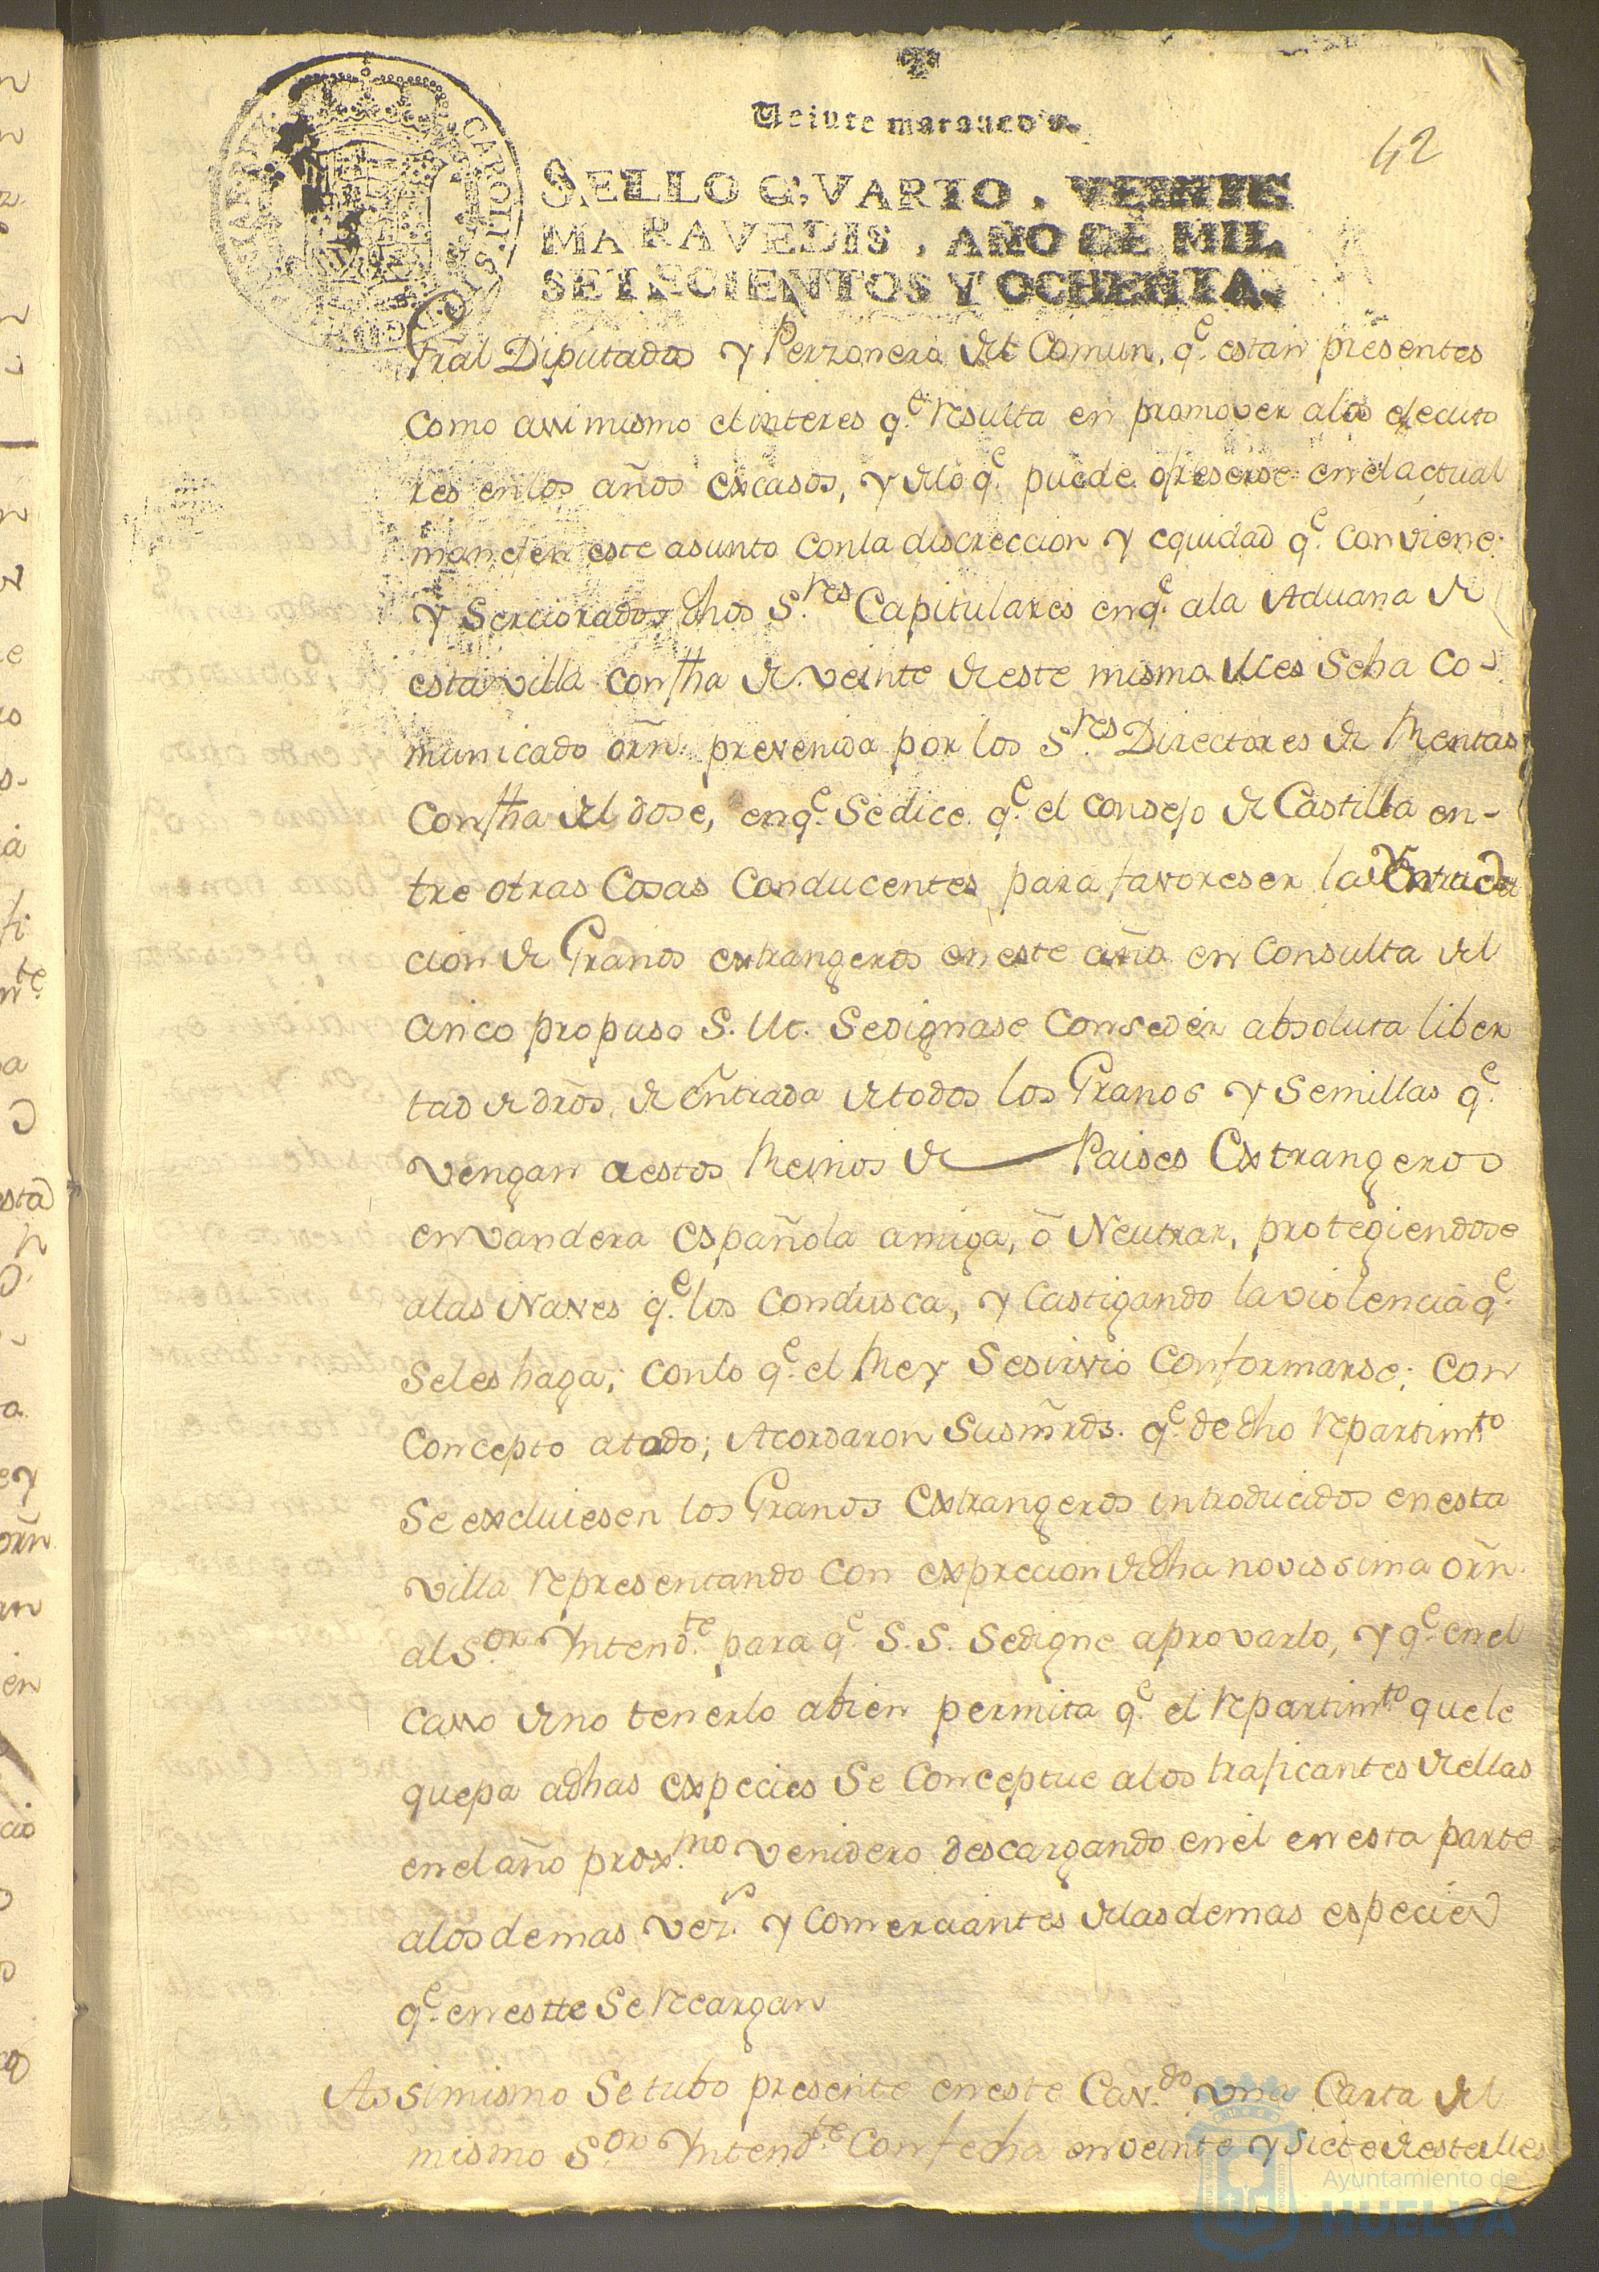 Veinte maravedis.
42
SELLO QVARTO, VEINTE
MARAVEDIS, AÑO DE MIL
SETECIENTOS Y OCHENTA.
CAROLUS
Gral Diputados y Perzonera del Comun, q.e estan presentes
como assi mismo el interes q.e resulta en promover alos
res enlos años excasos, y delo q.e puede ofreserse en el actual
manejen este asunto conla discreccion y equidad q.e conviene.
Y Serciorados dhos S.res Capitulares enq.e ala Aduana de
esta villa con fha de veinte de este mismo Mes Seha Co-
municado orñ. prevenida por los S.res Directores de Rentas
Con fha del dose, enq.e Sedice q.e el Consejo de Castilla en-
tre otras Cosas Conducentes para favoreser la
cion de Granos extrangeros en este año en Consulta del
cinco propuso S. M. Sedignase Conseder absoluta liber
tad de dros. de entrada de todos los Granos y Semillas q.e
vengan a estos Reinos de Paises Extrangeros
en vandera española amiga, ó Neutrar, protegiendose
alas Naves q.e los Condusca, y Castigando la violencia q.e
Seles haga; Conlo q.e el Rey Sesirvio Conformarse; Con
Concepto a todo; Acordaron Susm̃rds. q.e de dho repartim.to
Se excluiesen los Granos Extrangeros introducidos en esta
villa representando Con exprecion de dha novissima orñ.
al S.or Yntend.te para q.e S.S. Sedigne aprovarlo, y q.e en el
Casso de no tenerlo abien permita q.e el repartim.to quele
quepa adhas expecies Se Conceptue alos traficantes de ellas
en el año prox.mo venidero descargando en el en esta parte
alos demas vez.s y Comerciantes delas demas especies
q.e en estte Se recargan
Assimismo Se tubo presente en este Cav.do una Carta del
mismo S.or Yntend.te Con fecha en veinte y siete de este Mes
Ayuntamiento de
HUELVA